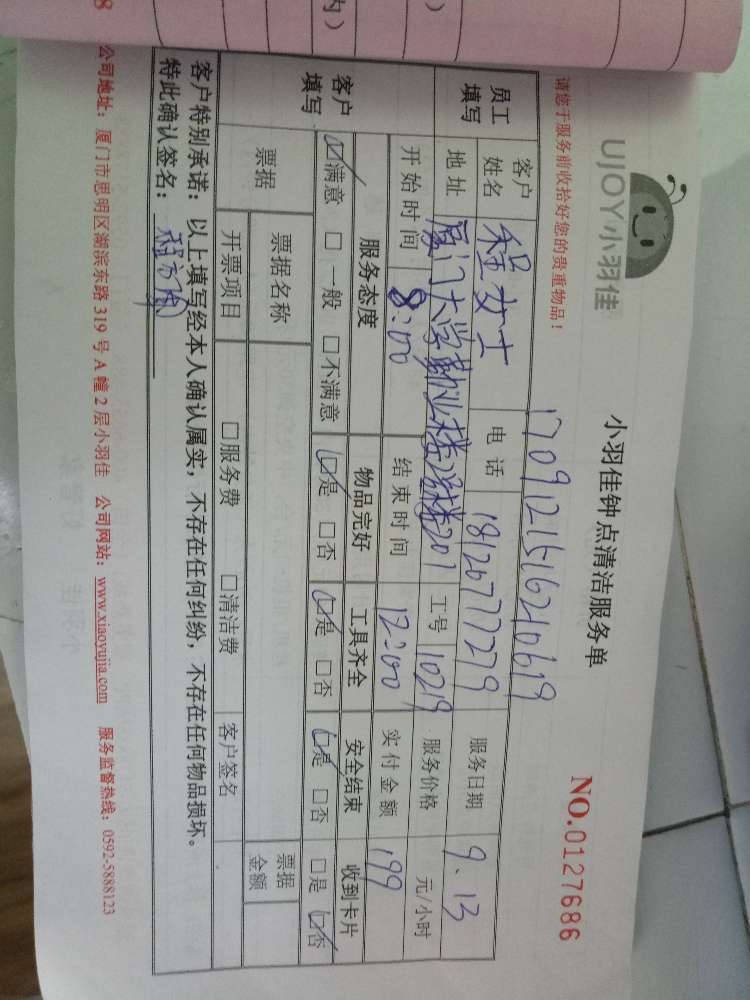 UJOY小羽佳
小羽佳钟点清洁服务单
NO.0127686
请您于服务前收拾好您的贵重物品！
员工填写
客户姓名 程女士 电话 18120777279 服务日期 9.13
地址 厦门大学勤业楼 201 工号 10219 服务价格 元/小时
开始时间 8:00 结束时间 12:00 实付金额 199
客户填写
服务态度 物品完好 工具齐全 安全结束 收到卡片
☑满意 □一般 □不满意 ☑是 □否 ☑是 □否 ☑是 □否 □是 ☑否
票据 票据名称 票据金额
开票项目 □服务费 □清洁费 客户签名
客户特别承诺：以上填写经本人确认属实，不存在任何纠纷，不存在任何物品损坏。
特此确认签名：
公司地址：厦门市思明区湖滨东路319号A幢2层小羽佳 公司网站：www.xiaoyujia.com 服务监督热线：0592-5888123